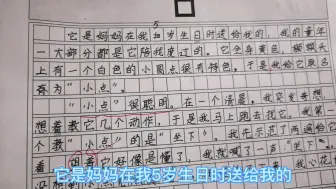 5
它是妈妈在我四岁生日时送给我的，我的童年
一大部分都是它陪我度过的。它全身黄色，蝴蝶
上有一个白色的小圆点很有特色。于是我给它取名
为“小点”。
“小点”很聪明。在一个清晨，我突发奇
想着教它几个动作，于是我马上跑去找它。我
教“小点”的是“坐下”。我先示范了两遍
它是妈妈在我5岁生日时送给我的